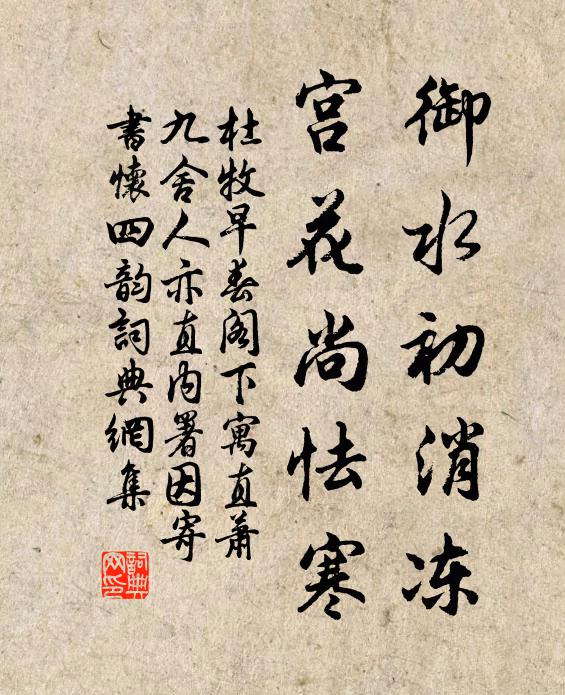 御水初消冻
宫花尚怯寒
杜牧早春阁下寓直萧
九舍人亦直内署因寄
書懷四韵詞典網集
詞典
网印